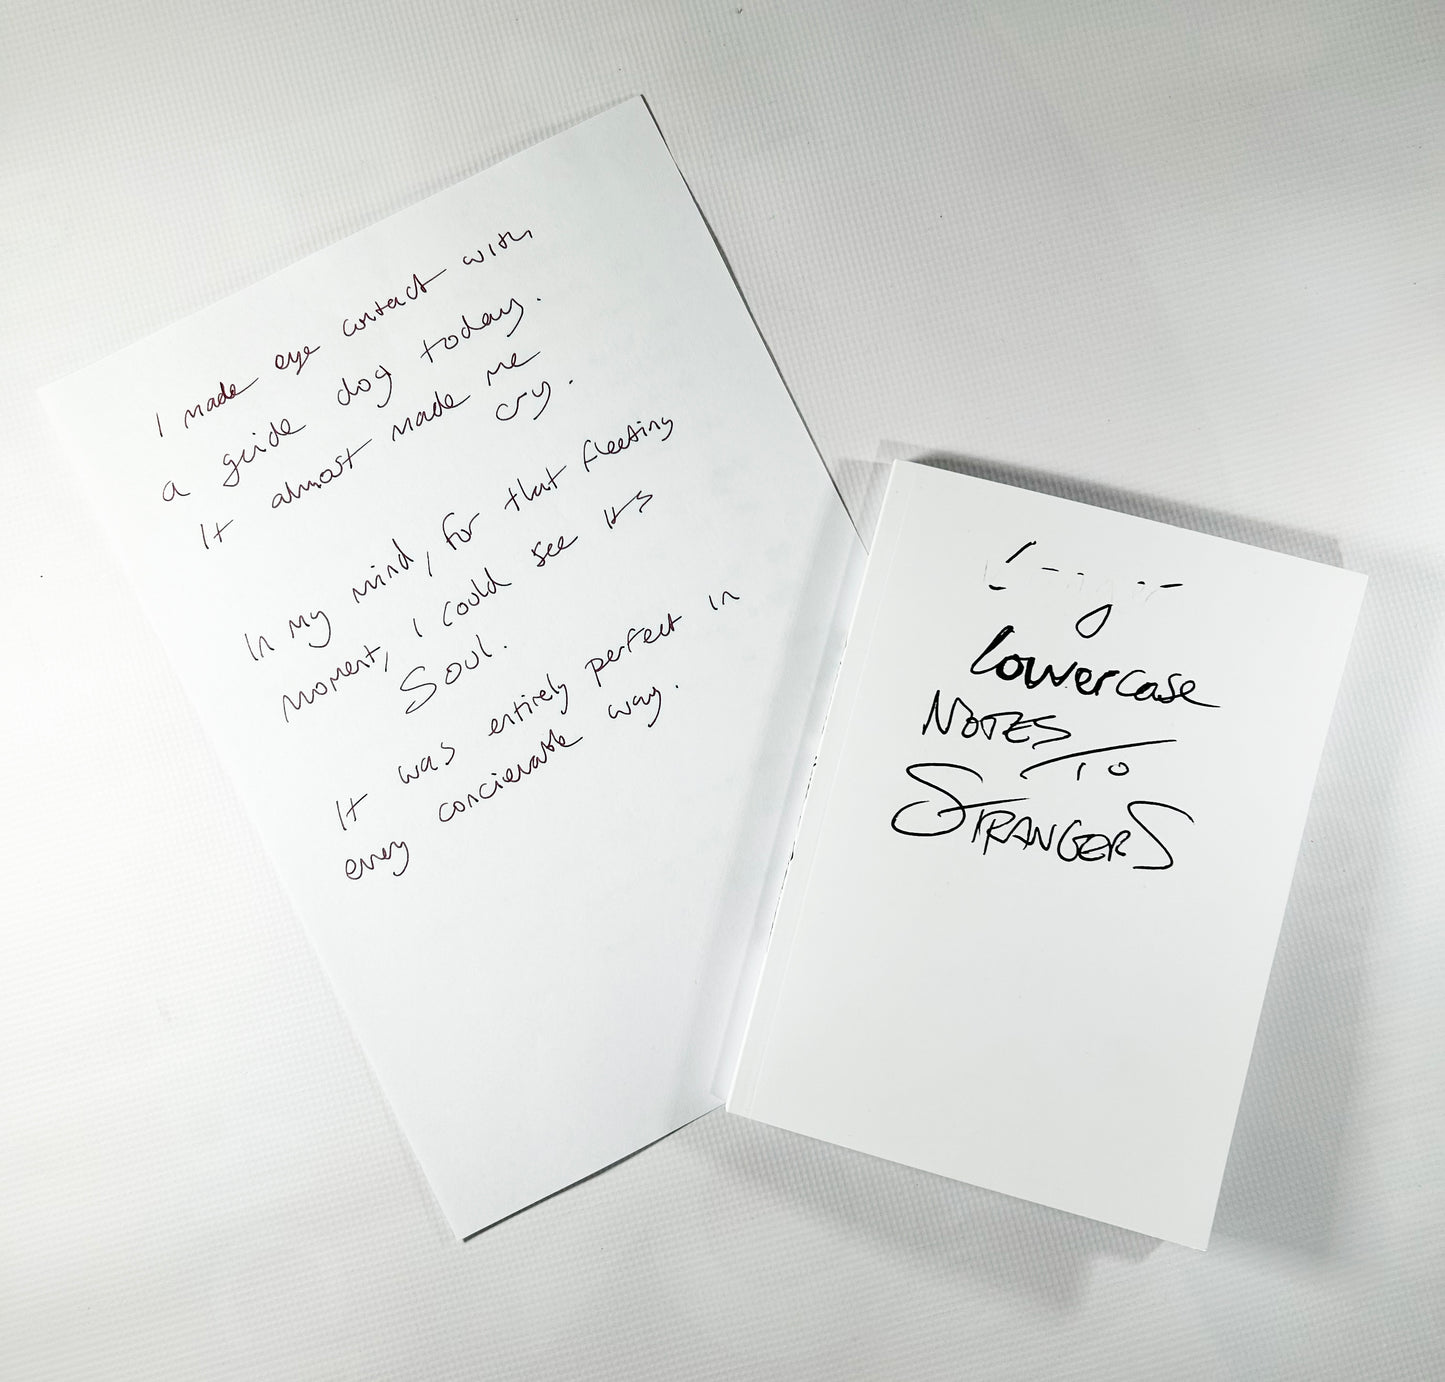 I made eye contact with
a guide dog today.
It almost made me
cry.
In my mind, for that fleeting
moment, I could see its
Soul.
It was entirely perfect in
every concievable way.
lowercase
NOTES TO
STRANGERS